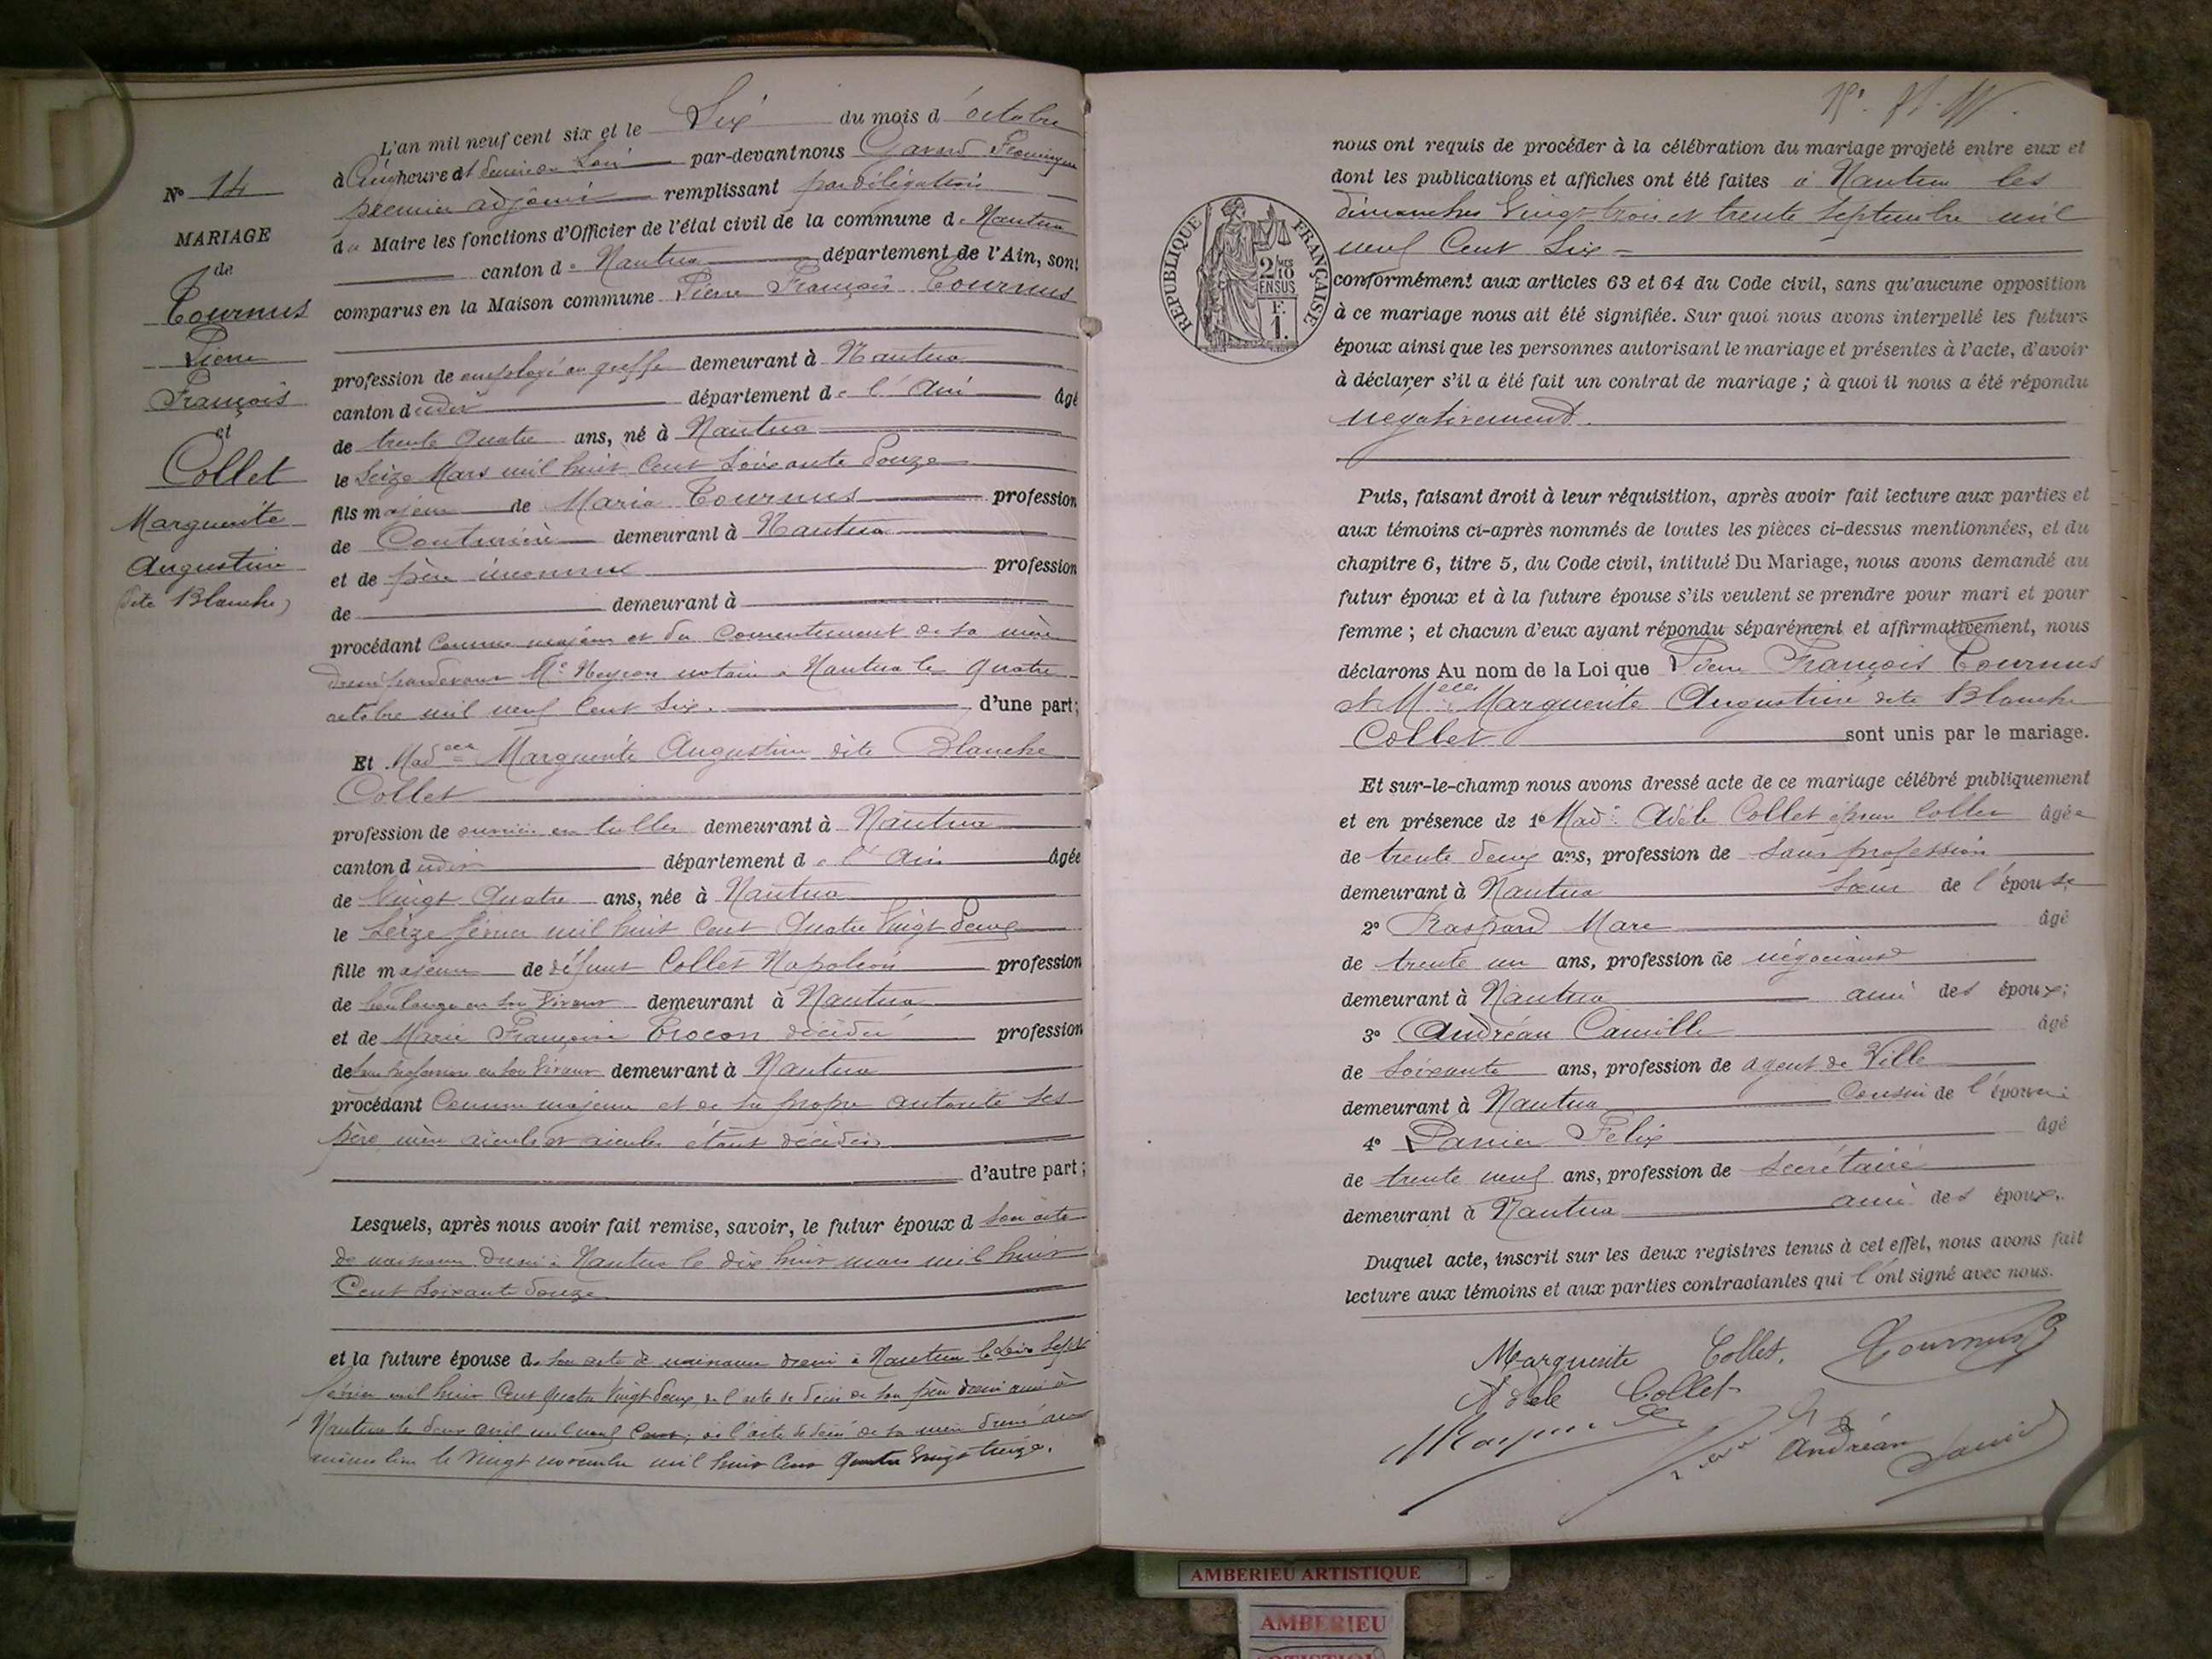 L'an mil neuf cent six et le Six du mois d'octobre
à Cinq heure et demie du Soir par-devant nous Gavard
premier adjoint remplissant par délégation
du Maire les fonctions d'Officier de l'état civil de la commune de Nantua
canton de Nantua département de l'Ain, sont
comparus en la Maison commune Pierre François Tournus
profession de employé au greffe demeurant à Nantua
canton dudit département de l'Ain âgé
de trente quatre ans, né à Nantua
le Seize Mars mil huit Cent Soixante douze
fils majeur de Maria Tournus profession
de Couturière demeurant à Nantua
et de père inconnu profession
de demeurant à
procédant Comme majeur et du Consentement de sa mère
dressé pardevant Me Neyron notaire à Nantua le quatre
octobre mil neuf Cent Six. d'une part;
Et Madelle Marguerite Augustine dite Blanche
Collet
profession de ouvrière en tulles demeurant à Nantua
canton dudit département de l'Ain âgée
de Vingt Quatre ans, née à Nantua
le Seize février mil huit Cent Quatre Vingt Deux
fille majeure de défunt Collet Napoléon profession
de boulanger en son Vivant demeurant à Nantua
et de Marie Françoise Crocon décédée profession
de Sans profession en son Vivant demeurant à Nantua
procédant Comme majeure et de sa propre autorité ses
père mère aieuls et aieules étant décédés
d'autre part;
Lesquels, après nous avoir fait remise, savoir, le futur époux d son acte
de naissance dressé à Nantua le dix huit mars mil huit
Cent Soixante douze
et la future épouse de son acte de naissance dressé à Nantua le dix Sept
février mil huit Cent Quatre Vingt deux, de l'acte de décès de son père dressé aussi à
Nantua le deux avril mil neuf Cent; de l'acte de décès de sa mère dressé au
même lieu le Vingt novembre mil huit Cent Quatre Vingt treize.
N° 14
MARIAGE
de
Tournus
Pierre
François
et
Collet
Marguerite
Augustine
(dite Blanche)
nous ont requis de procéder à la célébration du mariage projeté entre eux et
dont les publications et affiches ont été faites à Nantua les
dimanches Vingt-trois et trente Septembre mil
neuf Cent Six
RÉPUBLIQUE FRANÇAISE
2/10 MES
EN SUS
F.
1.
conformément aux articles 63 et 64 du Code civil, sans qu'aucune opposition
à ce mariage nous ait été signifiée. Sur quoi nous avons interpellé les futurs
époux ainsi que les personnes autorisant le mariage et présentes à l'acte, d'avoir
à déclarer s'il a été fait un contrat de mariage; à quoi il nous a été répondu
négativement.
Puis, faisant droit à leur réquisition, après avoir fait lecture aux parties et
aux témoins ci-après nommés de toutes les pièces ci-dessus mentionnées, et du
chapitre 6, titre 5, du Code civil, intitulé Du Mariage, nous avons demandé au
futur époux et à la future épouse s'ils veulent se prendre pour mari et pour
femme; et chacun d'eux ayant répondu séparément et affirmativement, nous
déclarons Au nom de la Loi que Pierre François Tournus
et Melle Marguerite Augustine dite Blanche
Collet sont unis par le mariage.
Et sur-le-champ nous avons dressé acte de ce mariage célébré publiquement
et en présence de 1° Made Adèle Collet épouse Collet âgée
de trente deux ans, profession de Sans profession
demeurant à Nantua Soeur de l'épouse
2° Raspard Marc âgé
de trente un ans, profession de négociant
demeurant à Nantua ami des époux;
3° Andréan Camille âgé
de Soixante ans, profession de agent de Ville
demeurant à Nantua Cousin de l'épouse;
4° Panier Félix âgé
de trente neuf ans, profession de Secrétaire
demeurant à Nantua ami des époux.
Duquel acte, inscrit sur les deux registres tenus à cet effet, nous avons fait
lecture aux témoins et aux parties contractantes qui l'ont signé avec nous.
Marguerite Collet. Tournus
Adele Collet
Andréan
AMBERIEU ARTISTIQUE
AMBERIEU
ARTISTIQUE